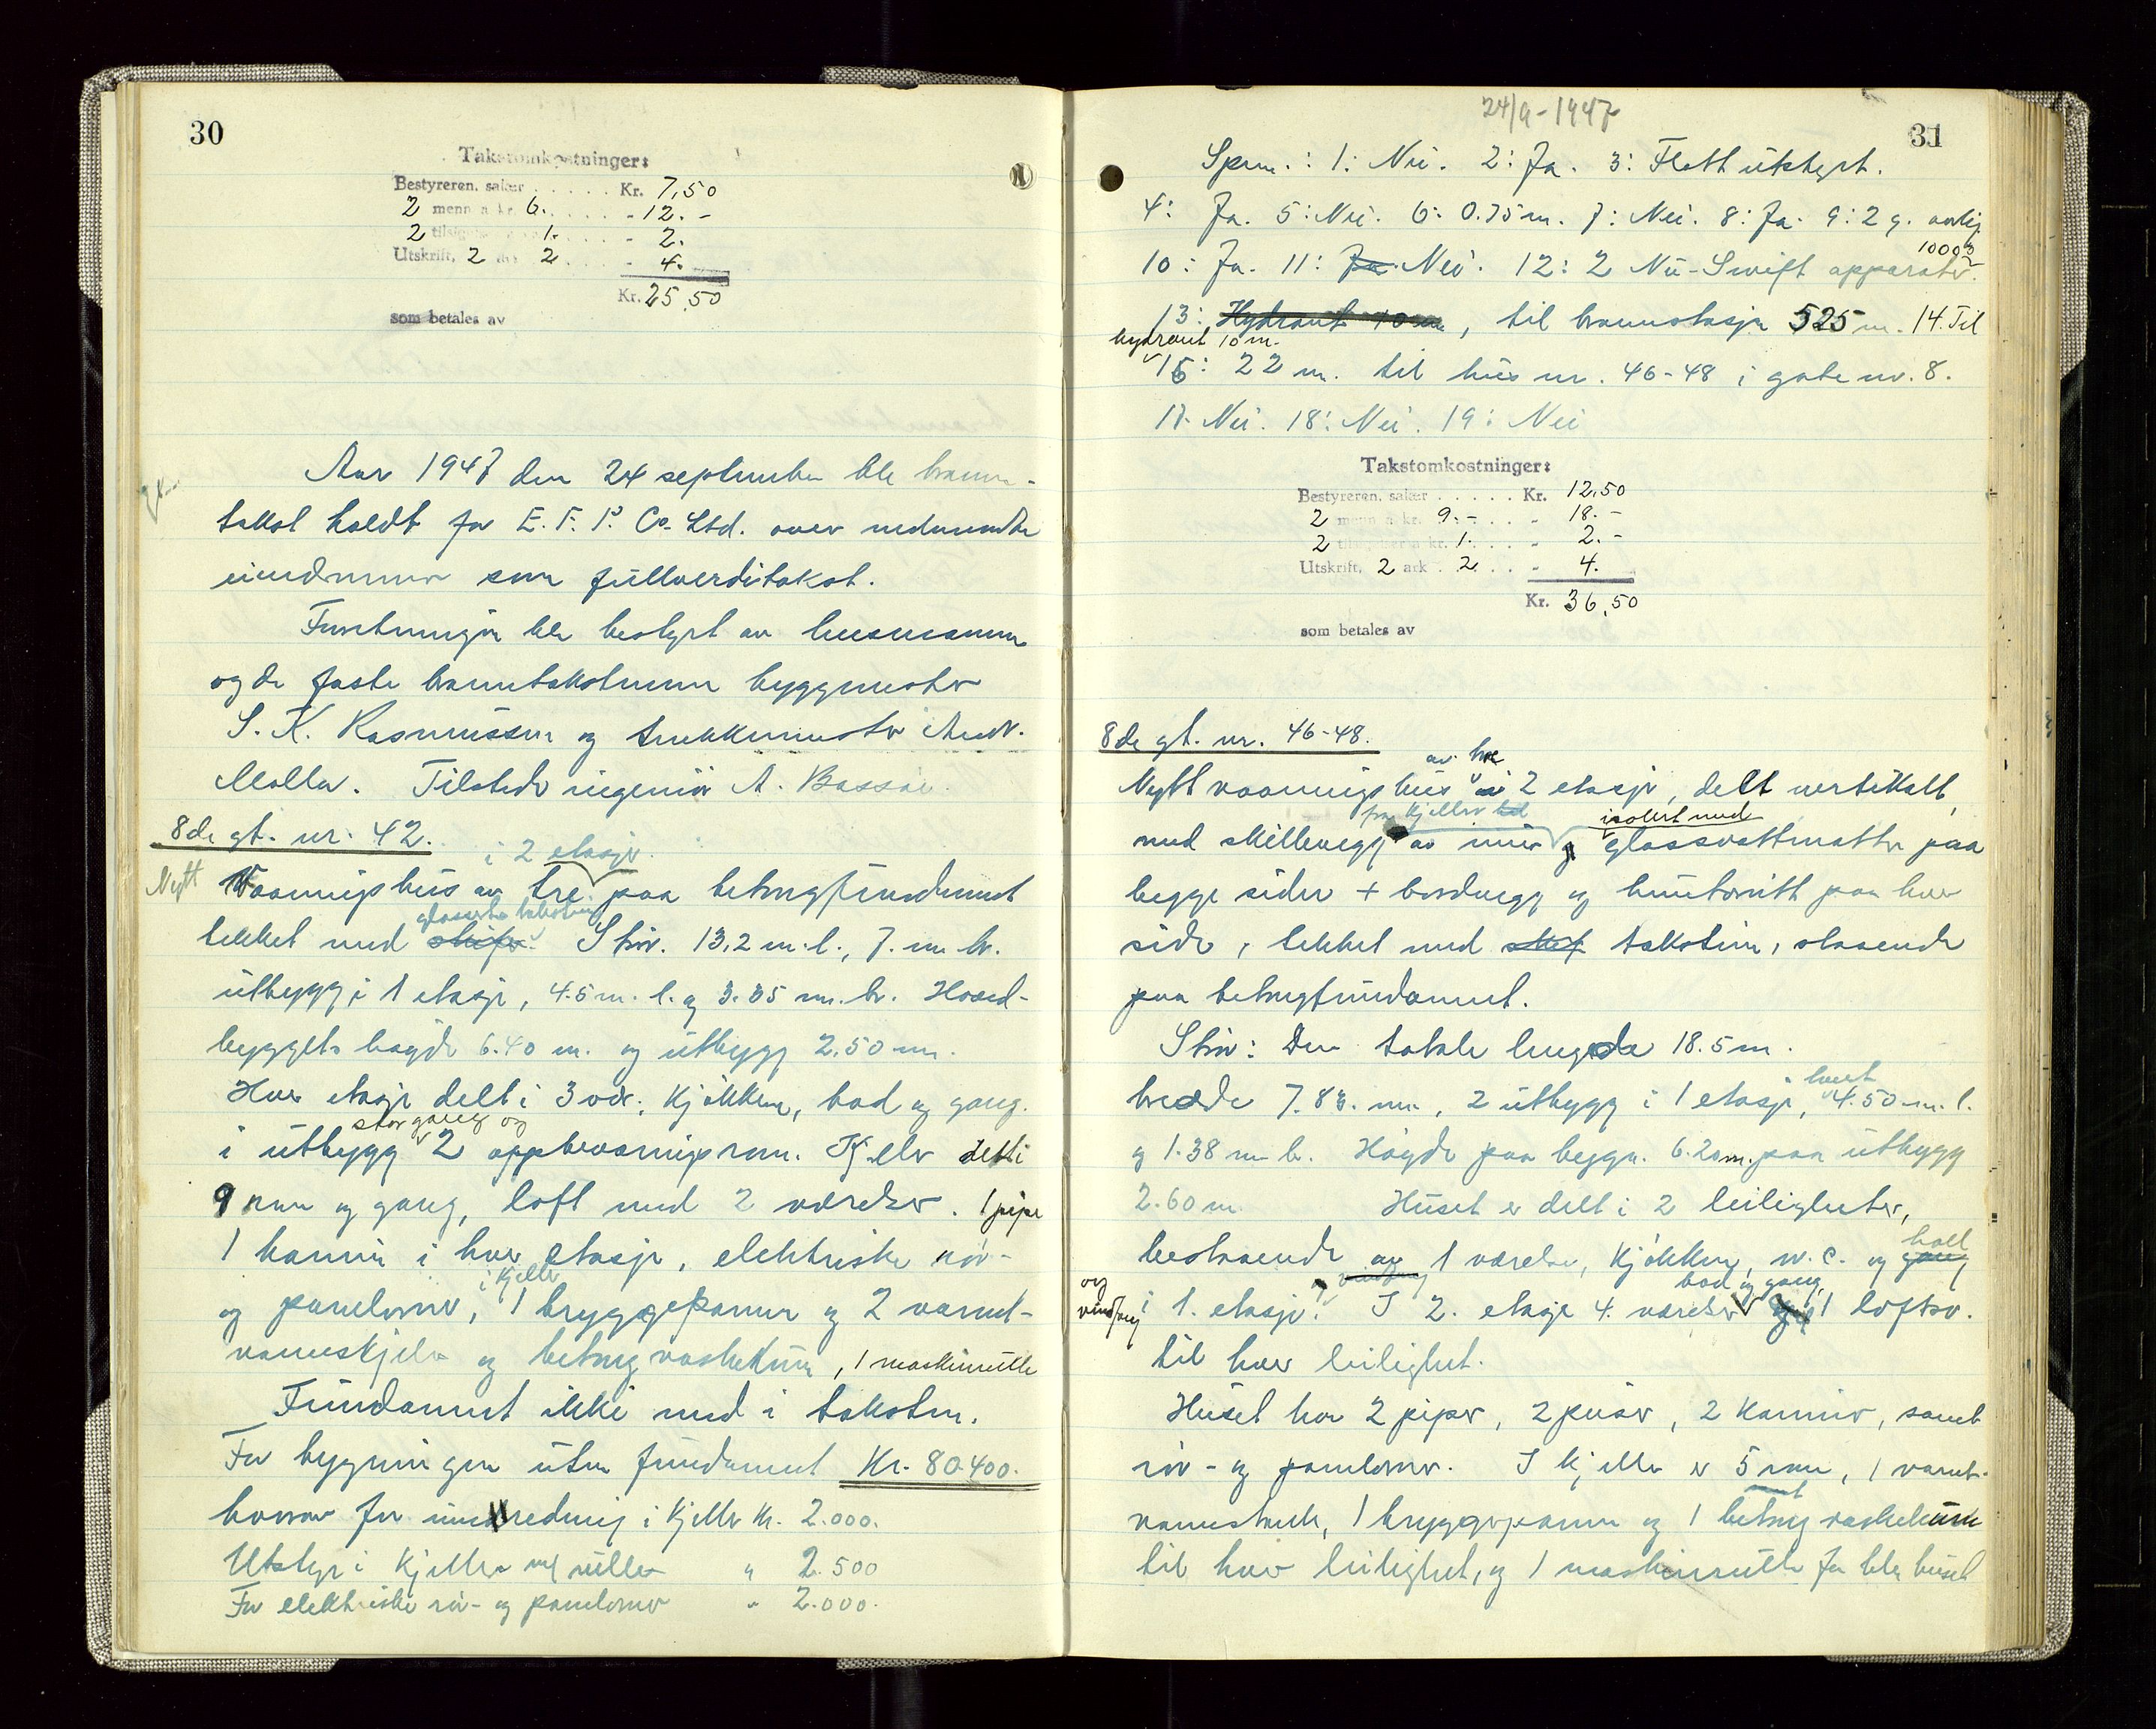 30
Takstomkostninger:
Bestyreren, salær . . . . . . Kr. 7,50
2 menn a kr. 6. . . . . . - 12.-
2 tilsigelser a kr. 1. . . . . - 2.
Utskrift, 2 ark 2 . . . . - 4.
Kr. 25,50
som betales av
Aar 1947 den 24 september ble brann-
takst holdt for E. F. P. Co. Ltd. over nedennevnte
eiendommer som fullverditakst.
Forretningen ble bestyrt av lensmannen
og de faste branntakstmenn byggmester
S. K. Rasmussen og snekkermester Andr.
Molla. Tilstede ingeniør A. Bassøe.
8de gt. nr. 42.
i 2 etasjer
Nytt Vaaningshus av tre paa betongfundament
glaserte takstein
tekket med skifer. Størr. 13,2 m. l., 7. m. br.
utbygg i 1 etasje, 4.5 m. l. og 3.35 m. br. Hoved-
byggets høgde 6.40 m. og utbygg 2.50 m.
Hver etasje delt i 3 vær., kjøkken, bad og gang.
stor gang og
i utbygg 2 oppbevaringsrom. Kjeller delt i
9 rom og gang, loft med 2 værelser. 1 pipe
1 kamin i hver etasje, elektriske rør-
i kjeller
og panelovner, 1 bryggepanne og 2 varmt-
vannskjeler og betong vaskekum, 1 maskinrulle
Fundament ikke med i taksten.
For bygningen uten fundament Kr. 80.400.
hvorav for innredning i kjeller Kr. 2.000.
Utstyr i kjeller m/ rulle " 2.500
For elektriske rør- og panelovner " 2.000.
24/9-1947
31
Spm.: 1: Nei. 2: Ja. 3: Flott utstyrt.
4: Ja. 5: Nei. 6: 0.75 m. 7: Nei. 8: Ja. 9: 2 g. aarlig
10: Ja. 11: Ja. Nei. 12: 2 Nu-Swift apparater.
13: Hydrant 10 m, til brannstasjon 525 m. 14. Til
hydrant 10 m.
15: 22 m. til hus nr. 46-48 i gate nr. 8.
17. Nei. 18: Nei. 19: Nei
Takstomkostninger:
Bestyreren, salær . . . . . Kr. 12,50
2 menn a kr. 9.- . . . - 18.-
2 tilsigelser a kr. 1. . . . - 2.-
Utskrift, 2 ark . 2 . . - 4.
Kr. 36,50
som betales av
8de gt. nr. 46-48.
av tre
Nytt vaaningshus i 2 etasjer, delt vertikalt,
fra kjeller til isolert med
med skillevegg av mur og glassvattmatter paa
begge sider + bordvegg og huntonitt paa hver
side, tekket med skif takstein, staaende
paa betongfundament.
Størr: Den totale lengde 18.5 m.
hvert
bredde 7.83. m., 2 utbygg i 1 etasje, 4.50 m. l.
og 1.38 m br. Høgde paa beggn. 6.20 m. paa utbygg
2.60 m. Huset er delt i 2 leiligheter,
hall
bestaaende av 1 værelse, kjøkken, w.c. og gang
og vindfang bad og gang,
i 1. etasje. I 2. etasje 4. værelser og 1 loftsv.
til hver leilighet.
Huset har 2 piper, 2 peiser, 2 kaminer, samt
rør- og panelovner. I kjeller er 5 rom, 1 varmt-
vannstank, 1 bryggepanne og 1 betong vaskekum
til hver leilighet, og 1 maskinrulle for hele huset